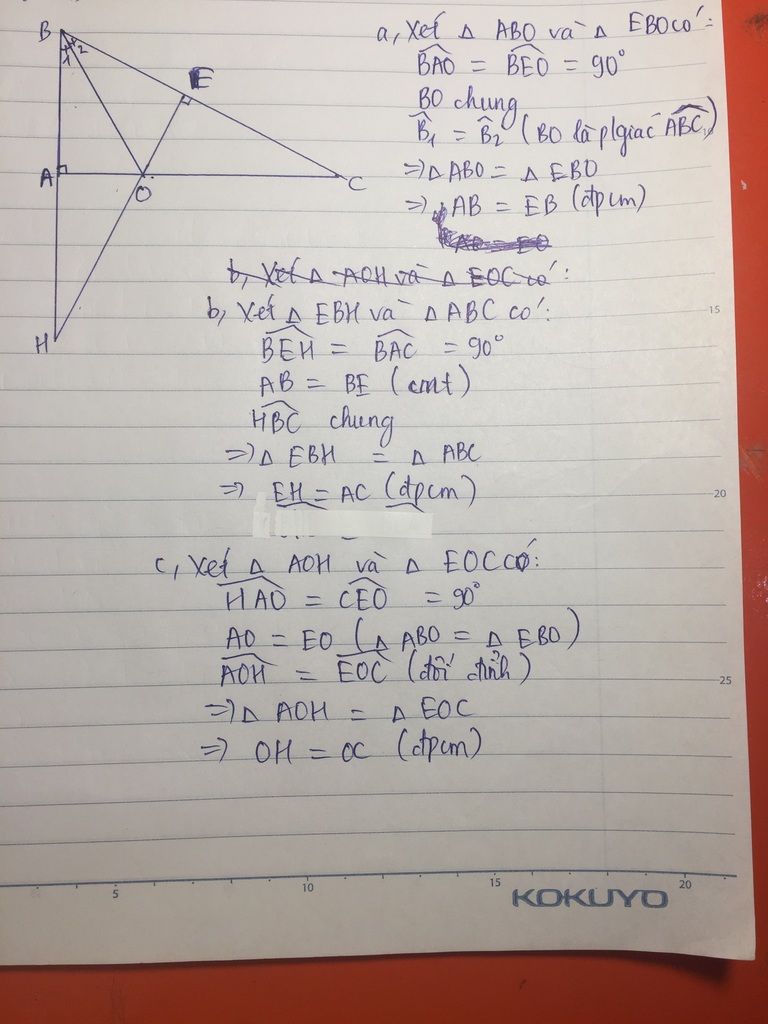 B
1 2
E
A
O
C
H
a, Xét △ ABO và △ EBO có:
$\widehat{BAO}$ = $\widehat{BEO}$ = 90°
BO chung
$\widehat{B}_1$ = $\widehat{B}_2$ (BO là p/giác $\widehat{ABC}$)
=> △ ABO = △ EBO
=> AB = EB (đpcm)
AO = EO
b, Xét △ AOH và △ EOC có:
b, Xét △ EBH và △ ABC có:
$\widehat{BEH}$ = $\widehat{BAC}$ = 90°
AB = BE (cmt)
$\widehat{HBC}$ chung
=> △ EBH = △ ABC
=> EH = AC (đpcm)
c, Xét △ AOH và △ EOC có:
$\widehat{HAO}$ = $\widehat{CEO}$ = 90°
AO = EO (△ ABO = △ EBO)
$\widehat{AOH}$ = $\widehat{EOC}$ (đối đỉnh)
=> △ AOH = △ EOC
=> OH = OC (đpcm)
15
20
25
5 10 15 20
KOKUYO